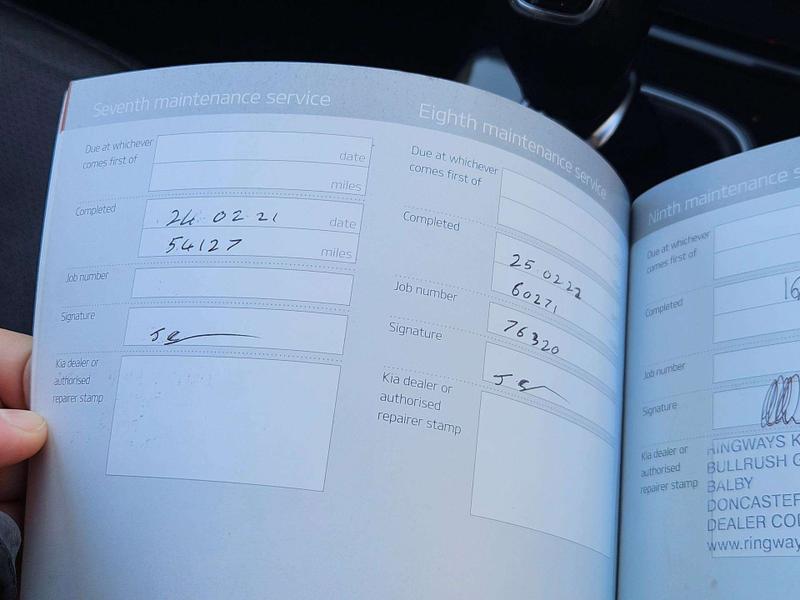 Seventh maintenance service
Due at whichever
comes first of
date
miles
Completed
24 02 21 date
54127 miles
Job number
Signature
Kia dealer or
authorised
repairer stamp
Eighth maintenance service
Due at whichever
comes first of
Completed
25.02.22
60271
Job number
76320
Signature
Kia dealer or
authorised
repairer stamp
Ninth maintenance s
Due at whichever
comes first of
Completed
16
Job number
Signature
Kia dealer or
authorised
repairer stamp
RINGWAYS K
BULLRUSH G
BALBY
DONCASTER
DEALER COD
www.ringway